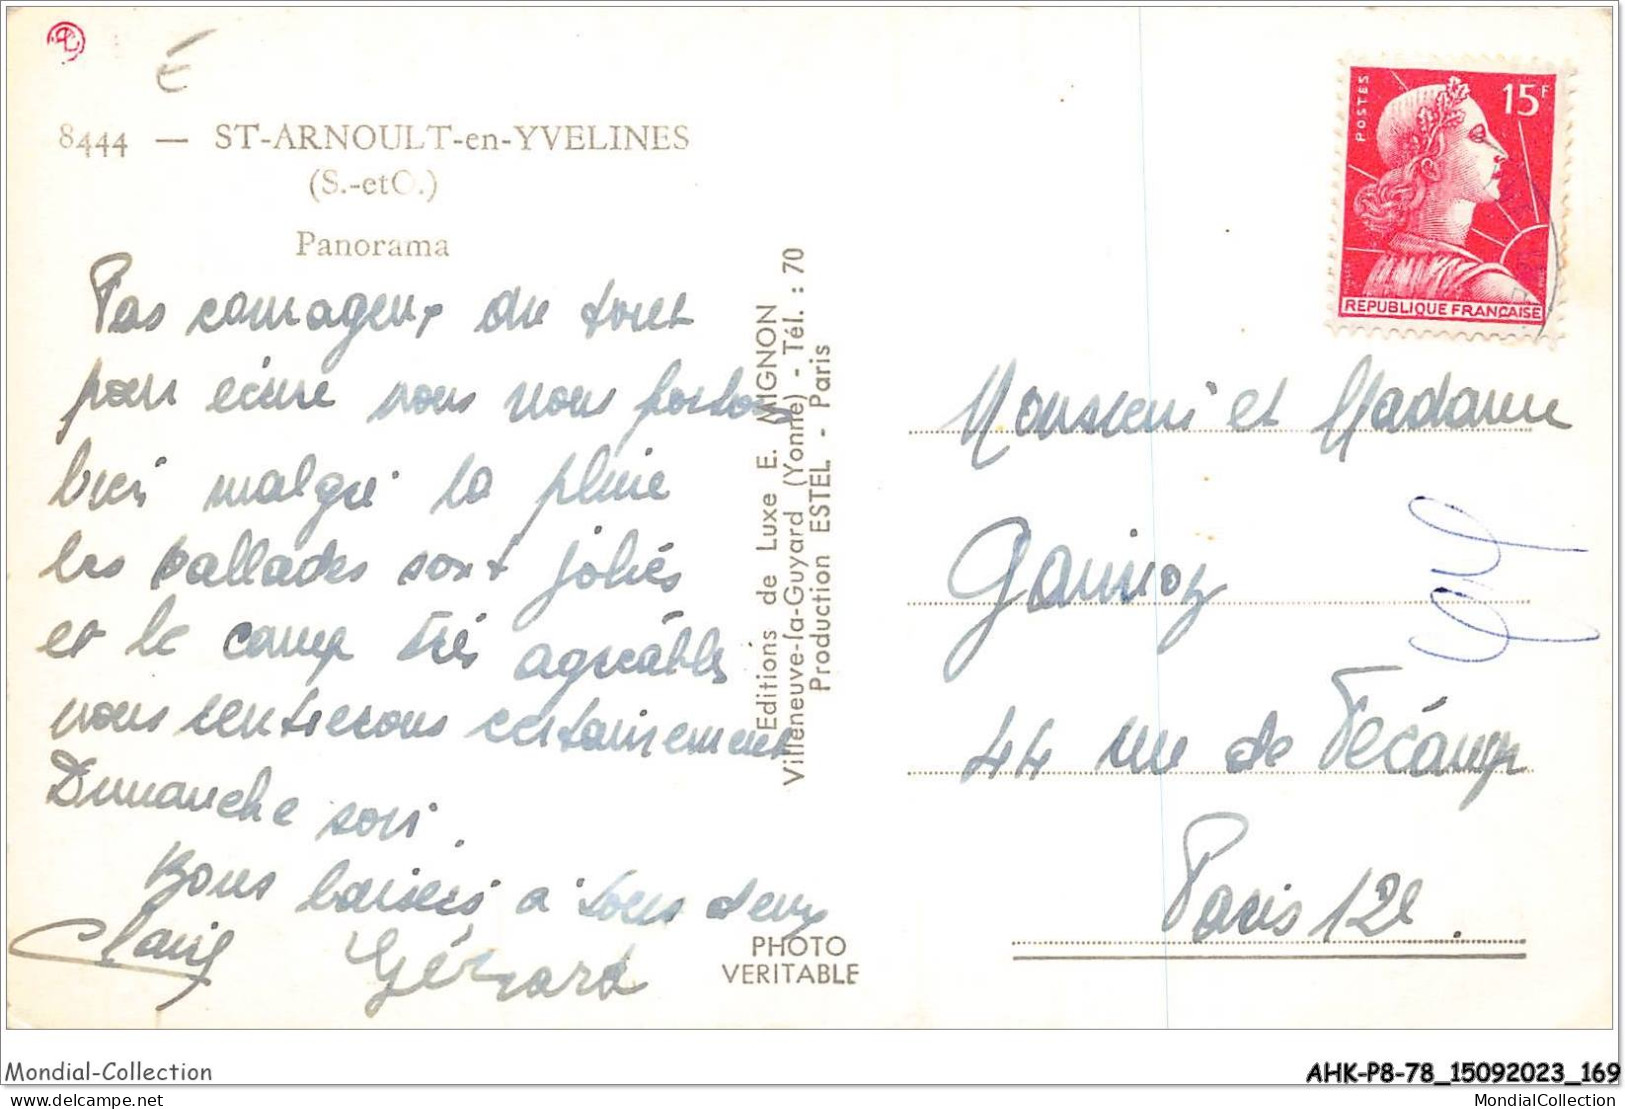 É
8444 — ST-ARNOULT-en-YVELINES
(S.-et O.)
Panorama
Pas courageux du tout
pour écrire nous nous portons
bien malgré la pluie
les ballades sont jolies
et le camp très agréable
nous rentrerons certainement
Dimanche soir.
Bons baisers à tous deux
Gérard
Editions de Luxe E. MIGNON
Villeneuve-la-Guyard (Yonne) - Tél. : 70
Production ESTEL - Paris
PHOTO
VERITABLE
POSTES
15F
REPUBLIQUE FRANÇAISE
Monsieur et Madame
44 rue de Fécamp
Paris 12e.
Mondial-Collection
AHK-P8-78_15092023_169
delcampe.net
MondialCollection